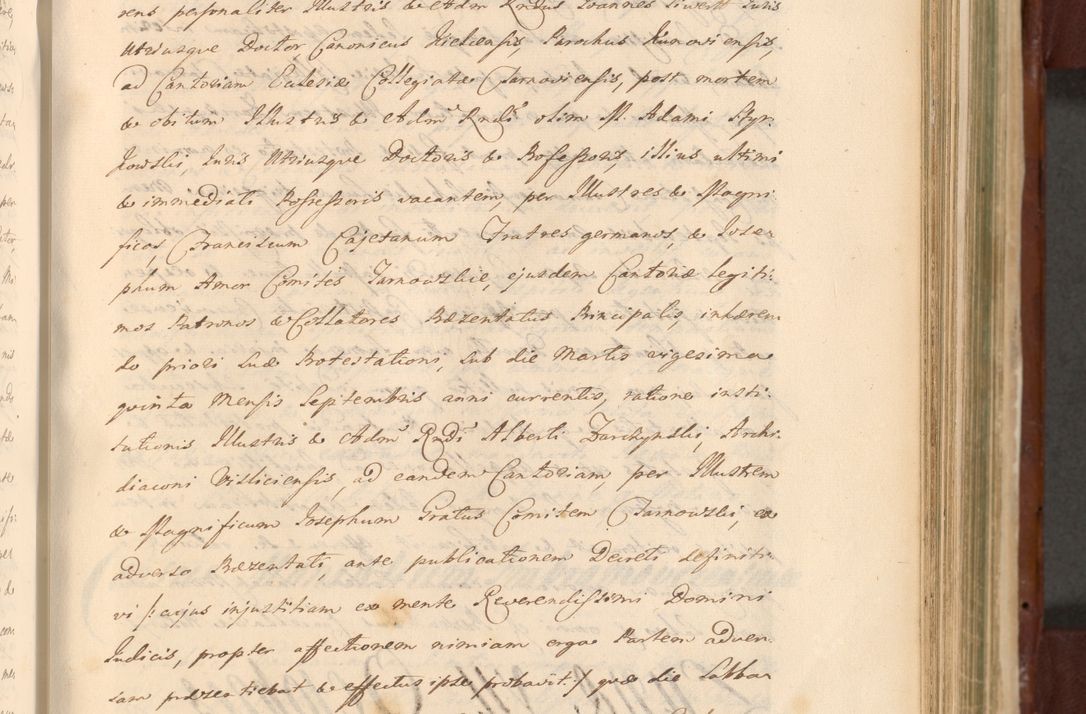 rens personaliter Illustris & Adm Rndus Joannes Siwert Juris
Utriusque Doctor Canonicus Kielcensis Parochus Kunoviensis,
ad Cantoriam Ecclesiæ Collegiatæ Tarnoviensis, post mortem
& obitum Illustris & Admᵈ Rndi olim M. Adami
Juris Utriusque Doctoris & Professoris, illius ultimi
& immediati Possessoris vacantem, per Illustres & Magni
ficos, Franciscum Cajetanum Fratres germanos, & Jose
phum Amor Comites Tarnowskie, ejusdem Cantoriæ Legiti:
mos Patronos & Collatores Præzentatus Principalis, inhæren
do priori suæ Protestationi, sub die Martis vigesima
quinta Mensis Septembris anni currentis, ratione insti:
tutionis Illustris & Admᵈ Rndi Alberti Archi:
diaconi Visliciensis, ad eandem Cantoriam, per Illustrem
& Magnificum Josephum Gratus Comitem Tarnowski, ex
adverso Præzentati, ante publicationem Decreti definiti:
vi /: cujus injustitiam ex mente Reverendissimi Domini
Judicis, propter affectionem nimiam erga Partem adver
sam præzentiebat & effectus ipse probavit :/ quæ die Sabba